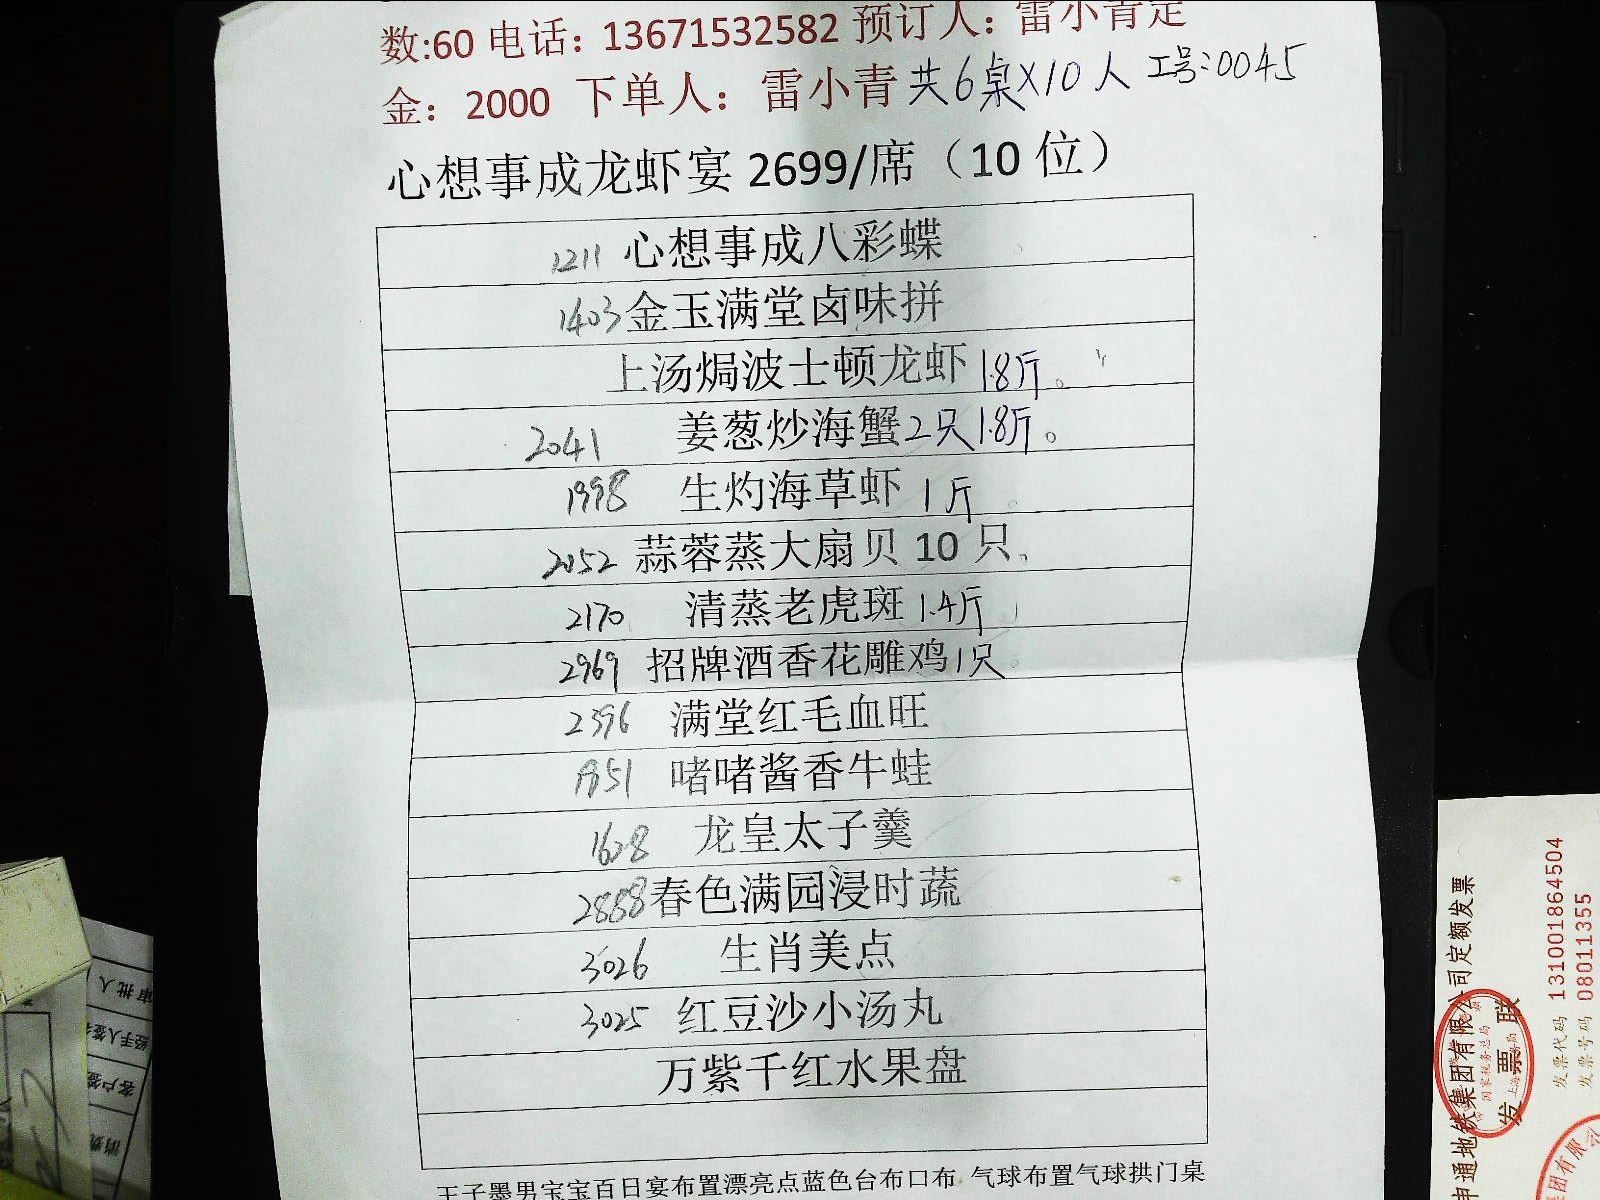 数:60 电话：13671532582 预订人：雷小青定
金：2000 下单人：雷小青 共6桌×10人 工号:0045
心想事成龙虾宴 2699/席（10 位）
1211 心想事成八彩蝶
1403 金玉满堂卤味拼
上汤焗波士顿龙虾 1.8斤。
2041 姜葱炒海蟹 2只1.8斤。
1998 生灼海草虾 1斤
2052 蒜蓉蒸大扇贝 10 只。
2170 清蒸老虎斑 1.4斤
2969 招牌酒香花雕鸡1只
2396 满堂红毛血旺
1951 啫啫酱香牛蛙
1628 龙皇太子羹
2888 春色满园浸时蔬
3026 生肖美点
3025 红豆沙小汤丸
万紫千红水果盘
王子墨男宝宝百日宴布置漂亮点蓝色台布口布 气球布置气球拱门桌
申通地铁集团有限公司定额发票
发票联
国家税务总局
发票代码 131001864504
发票号码 08011355
审批人
经手人签
客户签
消费